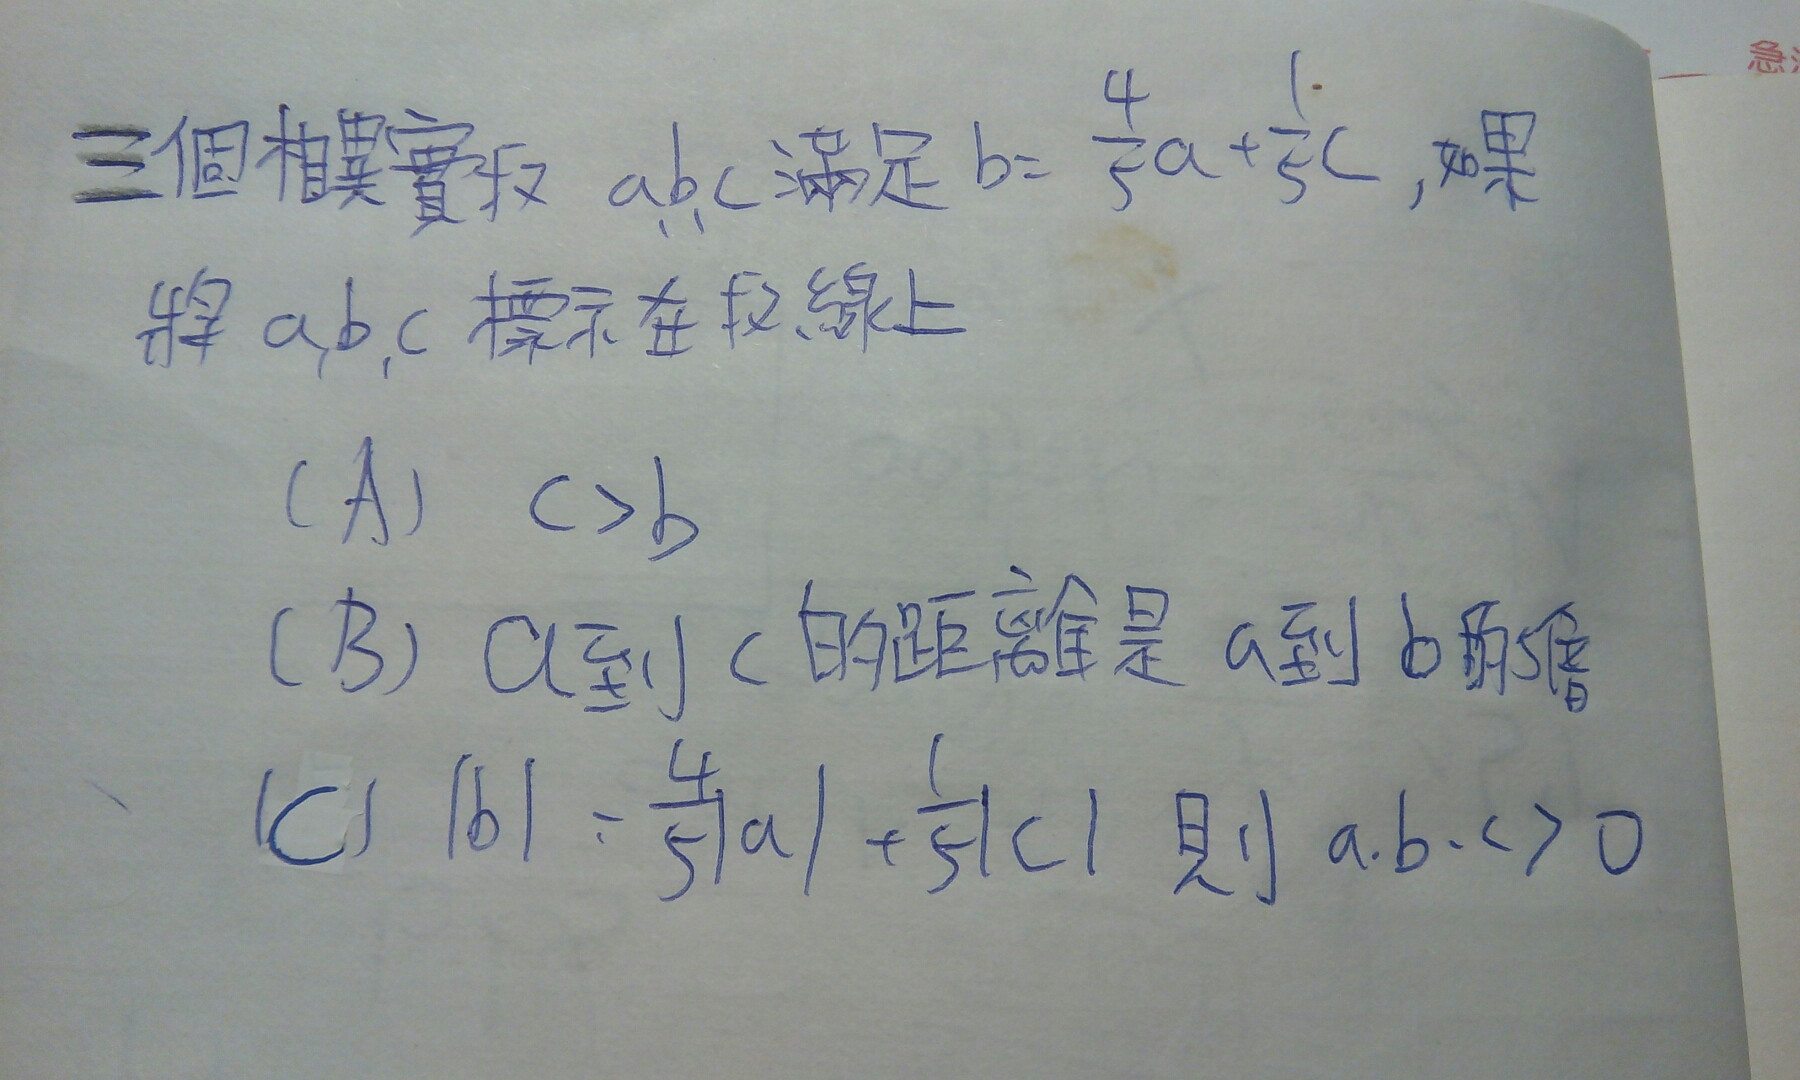 急
三個相異實数 a,b,c滿足 b= 4/5a+1/5c , 如果
將 a,b,c 標示在数線上
(A) c>b
(B) a到c的距離是 a到b的5倍
(C) |b| = 4/5|a| + 1/5|c| 則 a.b.c>0